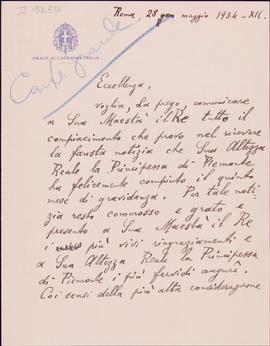 REALE ACCADEMIA D'ITALIA
Roma, 28 maggio 1934-XII.
Eccellenza,
voglia, La prego, comunicare
a Sua Maestà il Re tutto il
compiacimento che provo nel ricevere
la fausta notizia che Sua Altezza
Reale la Principessa di Piemonte
ha felicemente compiuto il quinto
mese di gravidanza. Per tale noti
zia resto commosso e grato e
presento a Sua Maestà il Re
i più vivi ringraziamenti e
a Sua Altezza Reale la Principessa
di Piemonte i più fervidi auguri.
Coi sensi della più alta considerazione